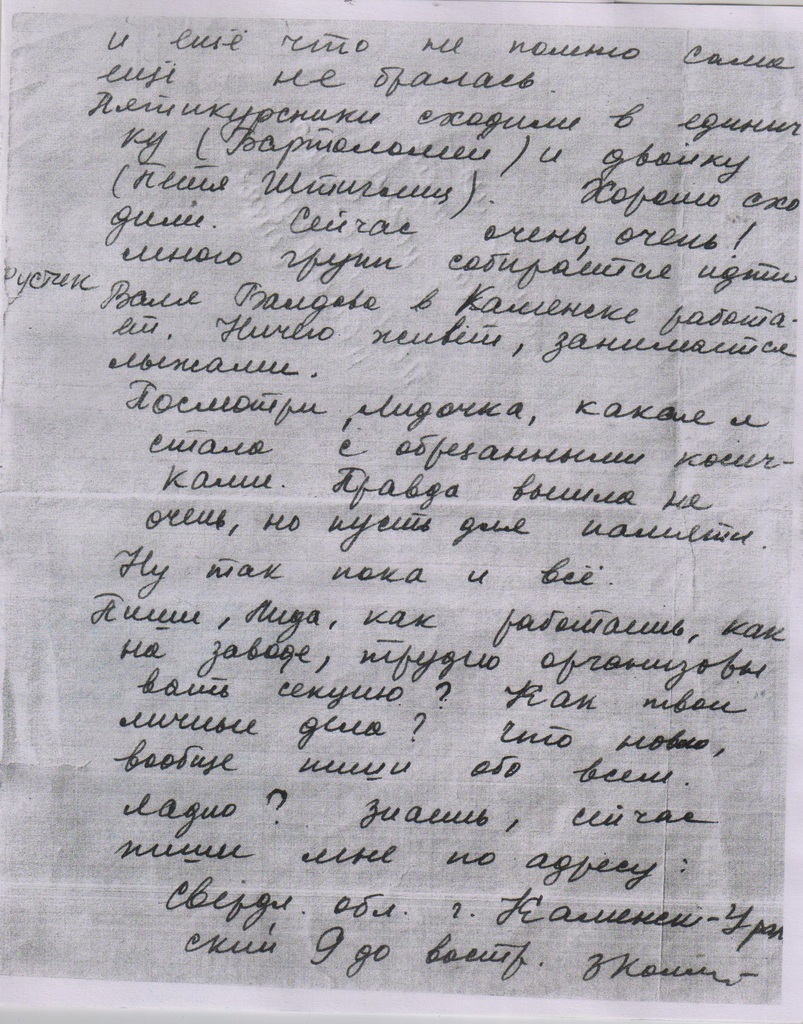 и ещё что не помню сама
ещё не бралась.
Пятикурсники сходили в единич
ку (Бартоломей) и двойку
(Петя Штиглиц). Хорошо схо
дили. Сейчас очень, очень!
много групп собирается идти
Валя Балдова в Каменске работа-
ет. Ничего живёт, занимается
лыжами.
Посмотри, Лидочка, какая я
стала с обрезанными косич-
ками. Правда вышла не
очень, но пусть для памяти.
Ну так пока и всё.
Пиши, Лида, как работаешь, как
на заводе, трудно организовы
вать секцию? Как твои
личные дела? Что нового,
вообще пиши обо всем.
Ладно? Знаешь, сейчас
пиши мне по адресу:
Свердл. обл. г. Каменск-Урал
ский Я до востр.